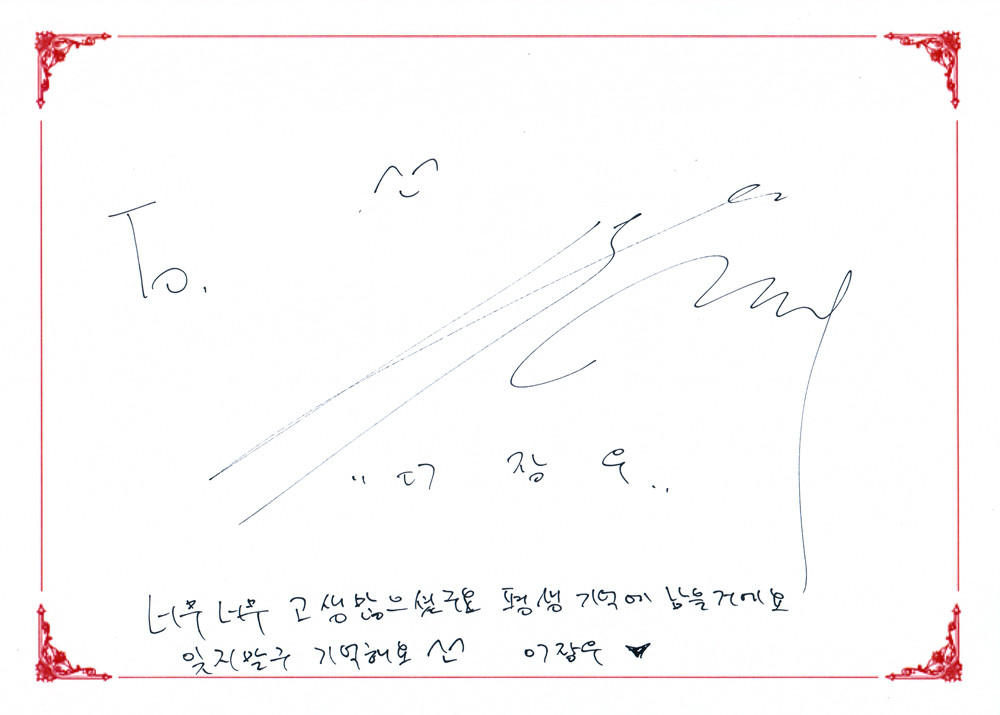 To.
" 이 장 우 "
너무너무 고생많으셨구요 평생 기억에 남을거에요
잊지말구 기억해요 이장우 ♥